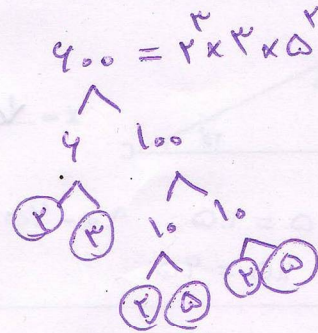 ۶۰۰ = ۲^۳ × ۳ × ۵^۲
۶ ۱۰۰
۲ ۳ ۱۰ ۱۰
۲ ۵ ۲ ۵